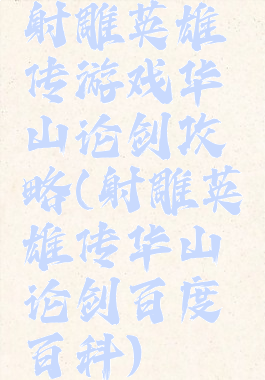 射雕英雄
传游戏华
山论剑攻
略(射雕英
雄传华山
论剑百度
百科)